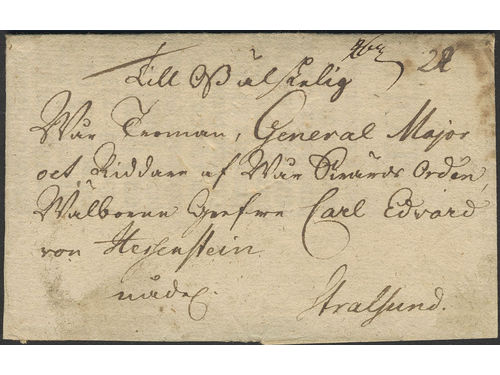 22
Till Wälskelig
Wår Troman, General Major
och Riddare af Wår Swärds Orden,
Wälborne Grefwe Carl Edvard
von Hessenstein
nåde.
Stralsund.